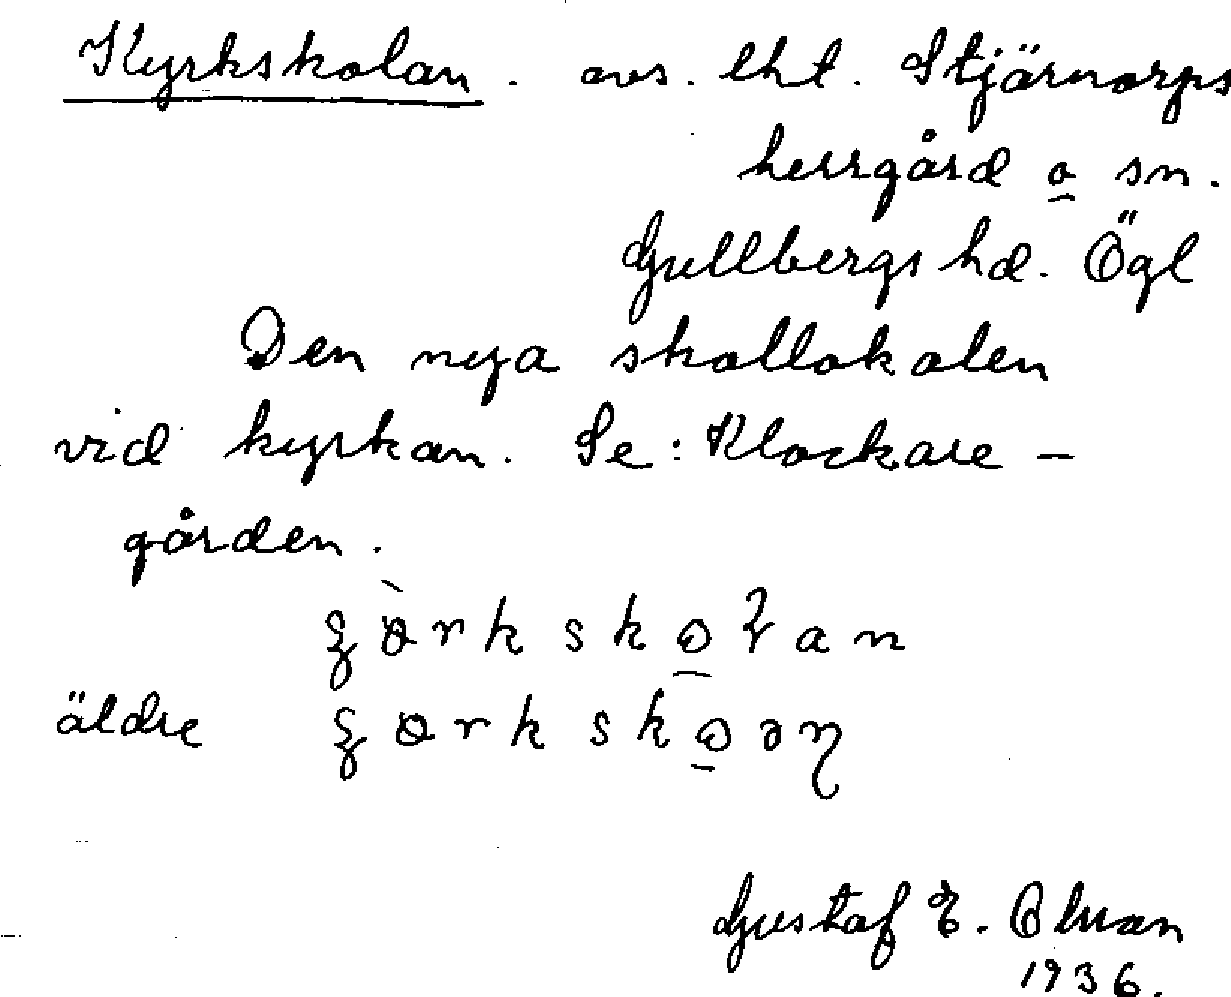 Kyrkskolan. avs. lht. Stjärnorps
herrgård o sn.
Gullbergs hd. Ögl
Den nya skollokalen
vid kyrkan. Se: Klockare-
gården.
äldre
Gustaf E.
1936.